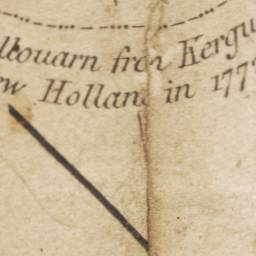 llouarn from Kergu
ew Holland in 177